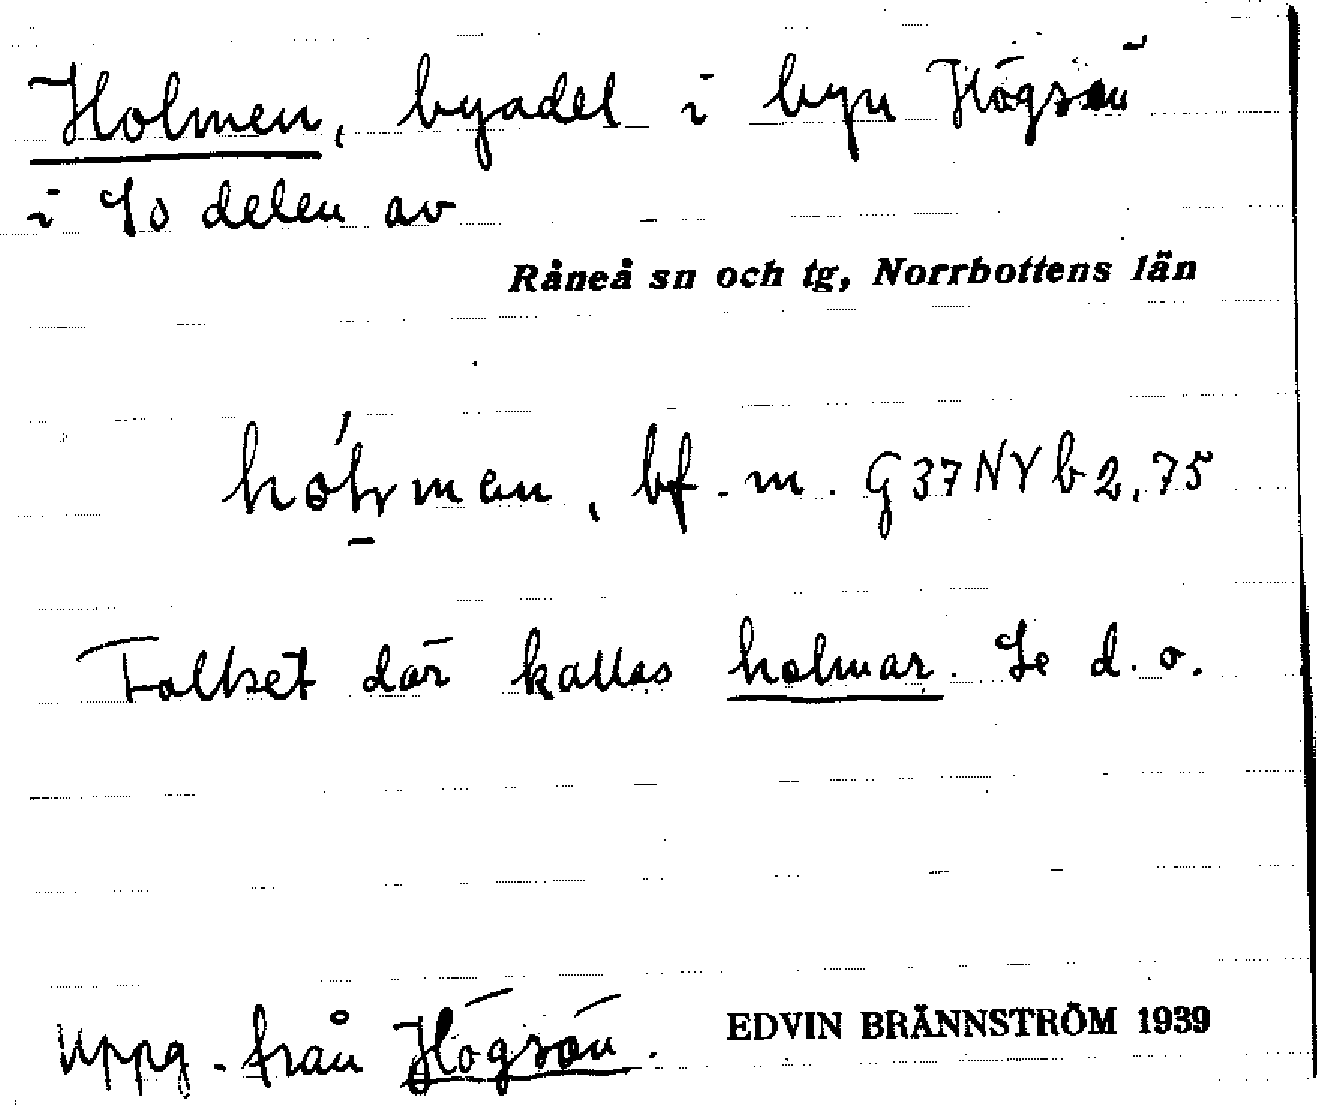 Holmen, byadel i byn Högsön
i So delen av
Råneå sn och tg, Norrbottens län
bf. m. G37NVb2,75
Folket där kallas holmar. Se d. o.
Uppg. från Högsön.
EDVIN BRÄNNSTRÖM 1939